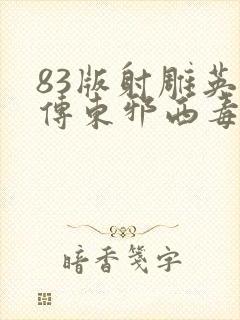 83版射雕英
傳東邪西毒
暗香箋字